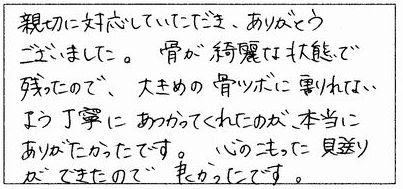 親切に対応していただき、ありがとう
ございました。 骨が綺麗な状態で
残ったので、大きめの骨ツボに割れない
よう丁寧にあつかってくれたのが、本当に
ありがたかったです。 心のこもった見送り
ができたので良かったです。